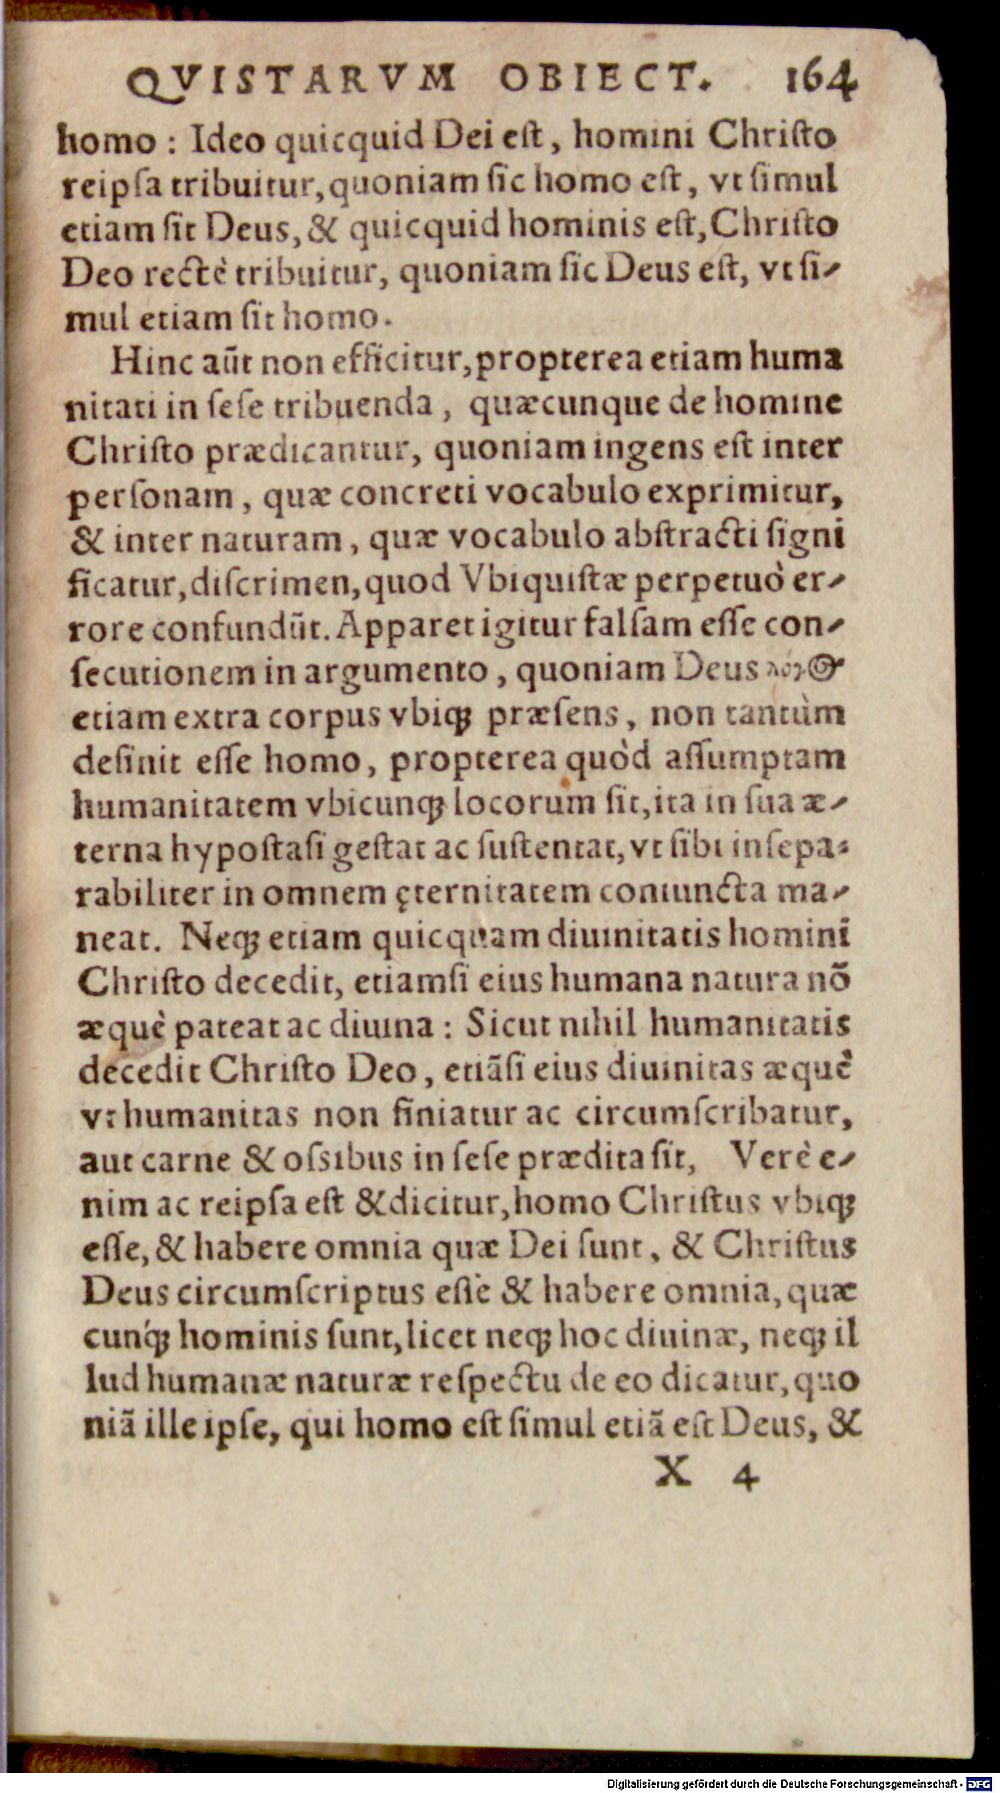 QVISTARVM OBIECT. 164
homo : Ideo quicquid Dei est, homini Christo
reipsa tribuitur, quoniam sic homo est, vt simul
etiam sit Deus, & quicquid hominis est, Christo
Deo rectè tribuitur, quoniam sic Deus est, vt si-
mul etiam sit homo.
Hinc aũt non efficitur, propterea etiam huma
nitati in sese tribuenda, quæcunque de homine
Christo prædicantur, quoniam ingens est inter
personam, quæ concreti vocabulo exprimitur,
& inter naturam, quæ vocabulo abstracti signi
ficatur, discrimen, quod Vbiquistæ perpetuò er-
rore confundũt. Apparet igitur falsam esse con-
secutionem in argumento, quoniam Deus λόγος
etiam extra corpus vbiq; præsens, non tantùm
desinit esse homo, propterea quòd assumptam
humanitatem vbicunq; locorum sit, ita in sua æ-
terna hypostasi gestat ac sustentat, vt sibi insepa-
rabiliter in omnem ęternitatem coniuncta ma-
neat. Neq; etiam quicquam diuinitatis homini
Christo decedit, etiamsi eius humana natura nõ
æquè pateat ac diuina : Sicut nihil humanitatis
decedit Christo Deo, etiãsi eius diuinitas æquè
vt humanitas non finiatur ac circumscribatur,
aut carne & ossibus in sese prædita sit, Verè e-
nim ac reipsa est & dicitur, homo Christus vbiq;
esse, & habere omnia quæ Dei sunt, & Christus
Deus circumscriptus esse & habere omnia, quæ
cunq; hominis sunt, licet neq; hoc diuinæ, neq; il
lud humanæ naturæ respectu de eo dicatur, quo
niã ille ipse, qui homo est simul etiã est Deus, &
X 4
Digitalisierung gefördert durch die Deutsche Forschungsgemeinschaft - DFG